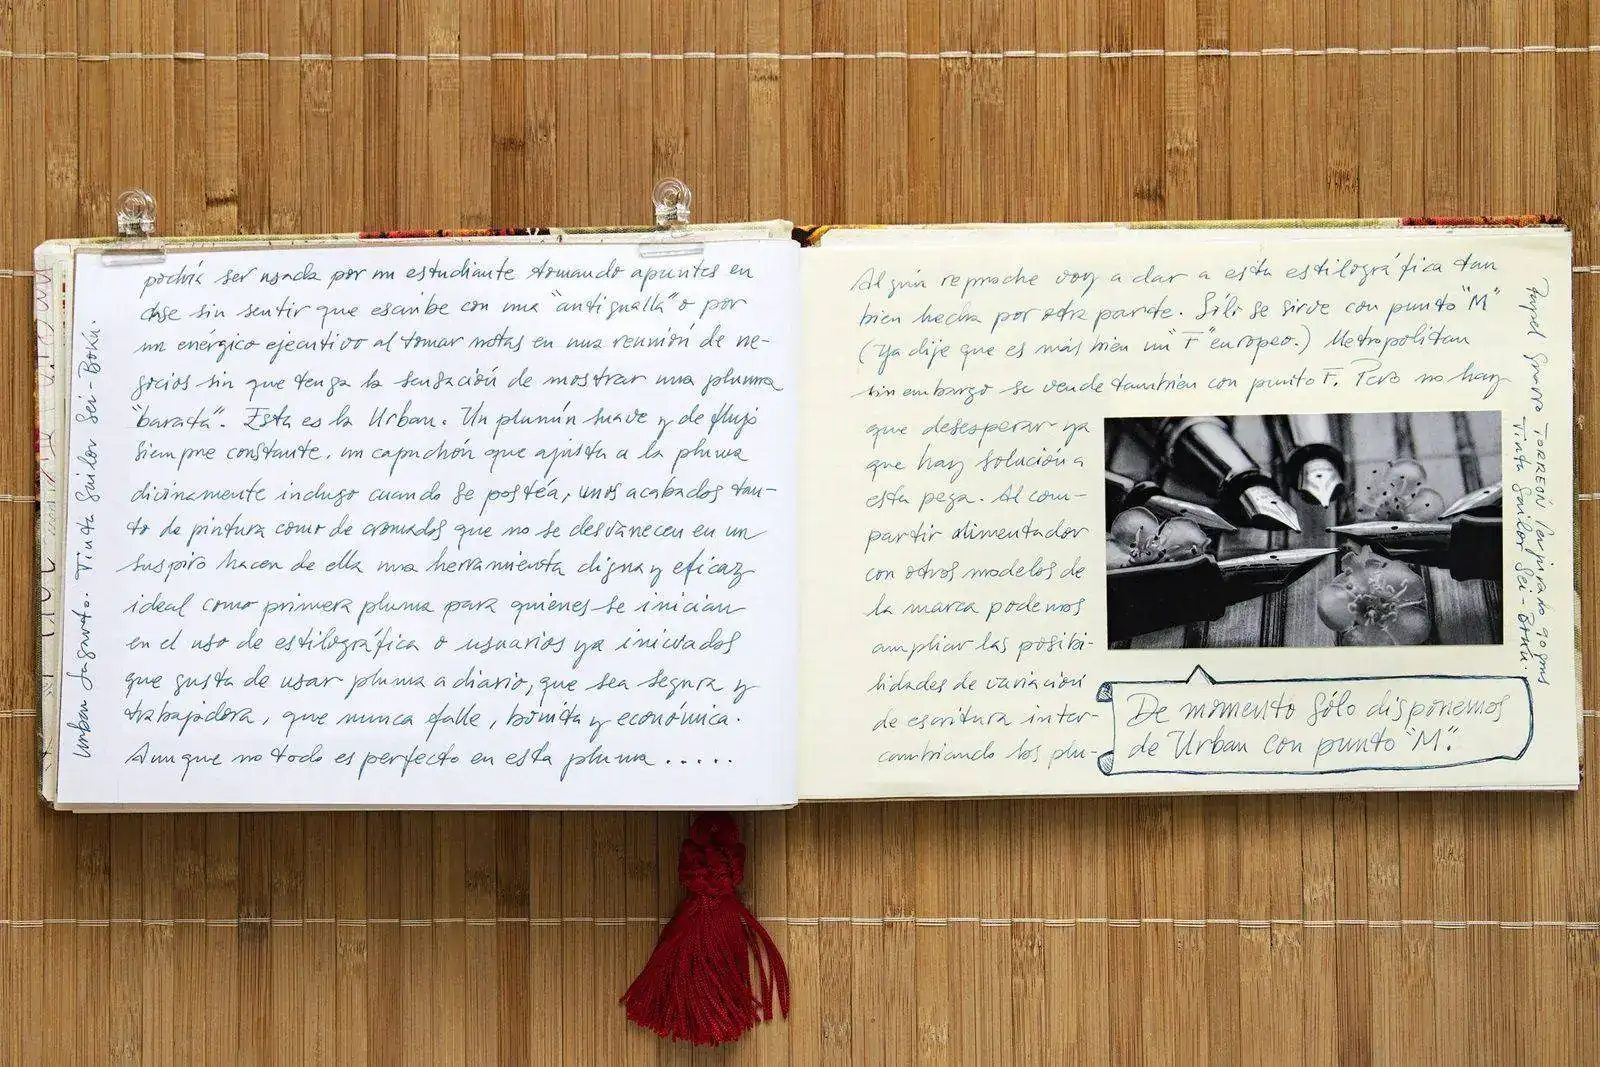 podría ser usada por un estudiante tomando apuntes en
clase sin sentir que escribe con una "antigualla" o por
un enérgico ejecutivo al tomar notas en una reunión de ne-
gocios sin que tenga la sensación de mostrar una pluma
"barata". Esta es la Urban. Un plumín suave y de flujo
siempre constante, un capuchón que ajusta a la pluma
divinamente incluso cuando se postéa, unos acabados tan-
to de pintura como de cromados que no se desvanecen en un
suspiro hacen de ella una herramienta digna y eficaz
ideal como primera pluma para quienes se inician
en el uso de estilográfica o usuarios ya iniciados
que gusta de usar pluma a diario, que sea segura y
trabajadora, que nunca falle, bonita y económica.
Aunque no todo es perfecto en esta pluma .....
Urban Tinta Sailor Sei-Boku.
Algún reproche voy a dar a esta estilográfica tan
bien hecha por otra parte. Sólo se sirve con punto "M"
(Ya dije que es más bien un "F" europeo.) Metropolitan
sin embargo se vende también con punto F. Pero no hay
que desesperar ya
que hay solución a
esta pega. Al com-
partir alimentador
con otros modelos de
la marca podemos
ampliar las posibi-
lidades de variación
de escritura inter-
cambiando los plu-
De momento sólo disponemos
de Urban con punto "M".
Papel Guarro TORREÓN Verjurado 90 gms
Tinta Sailor Sei-Boku.